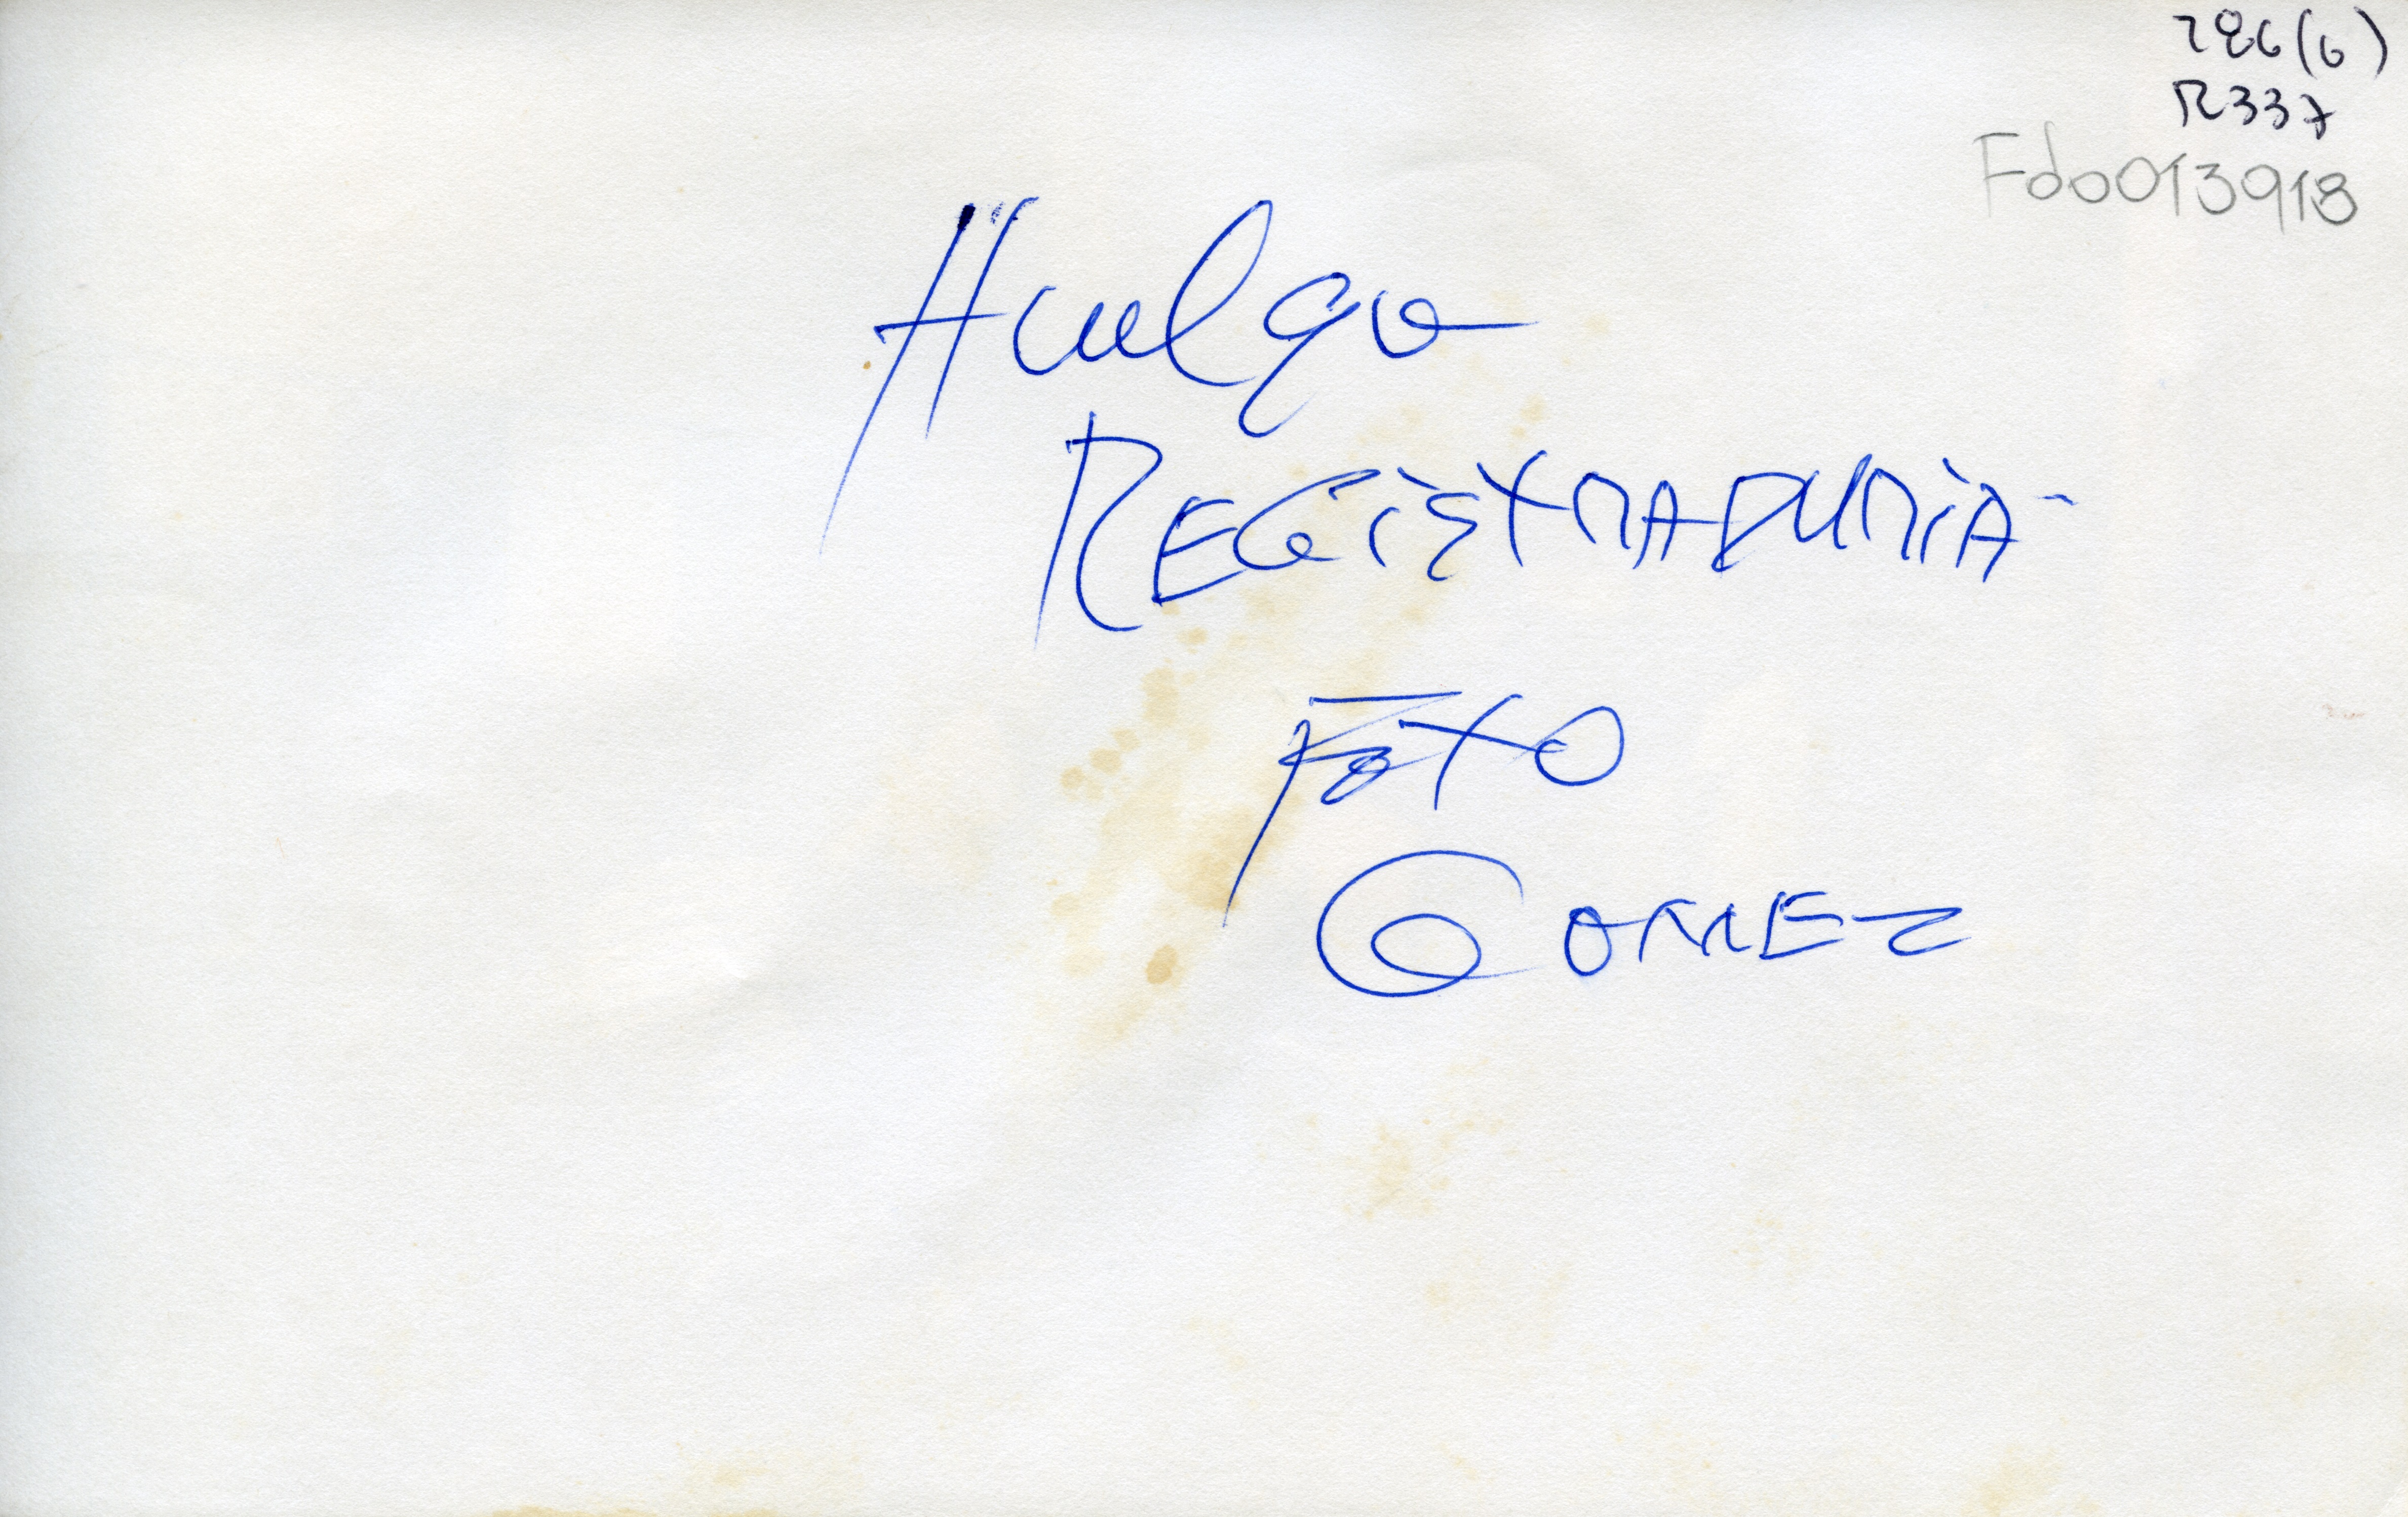 286(6)
R337
Fdo013918
Huelga
REGiSTRADURiA-
FOTO
GOMEZ